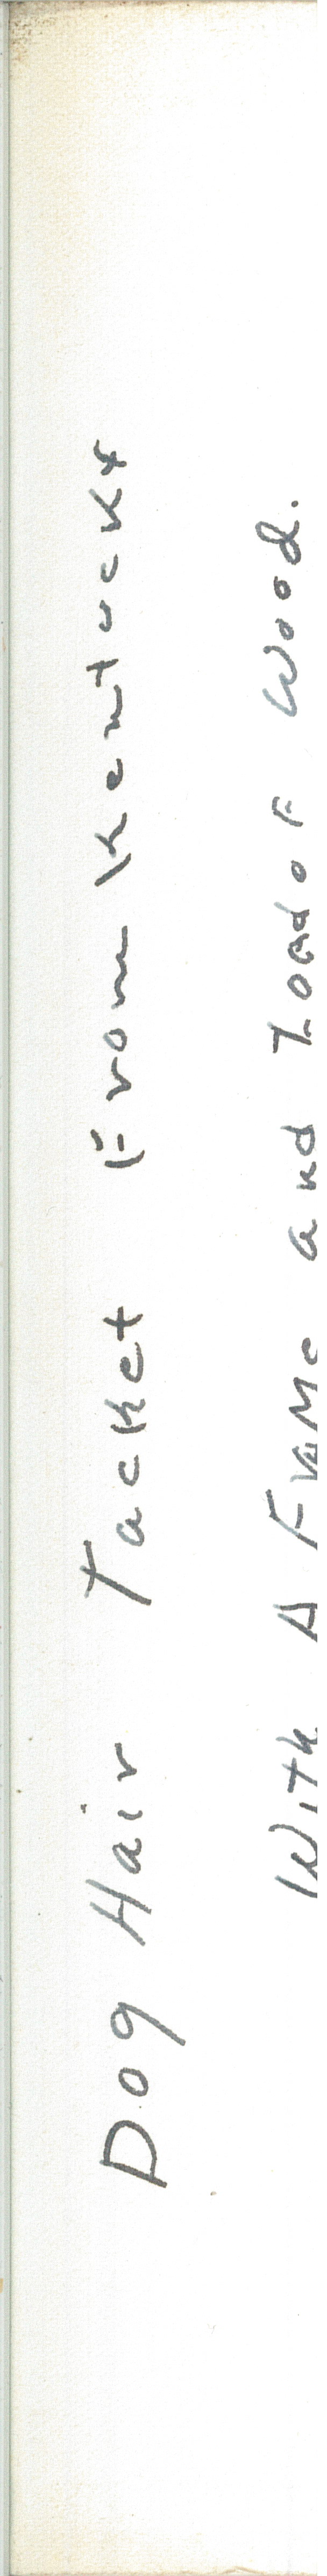 Dog Hair Tacket From Kentucky
With A Frame and Load of Wood.